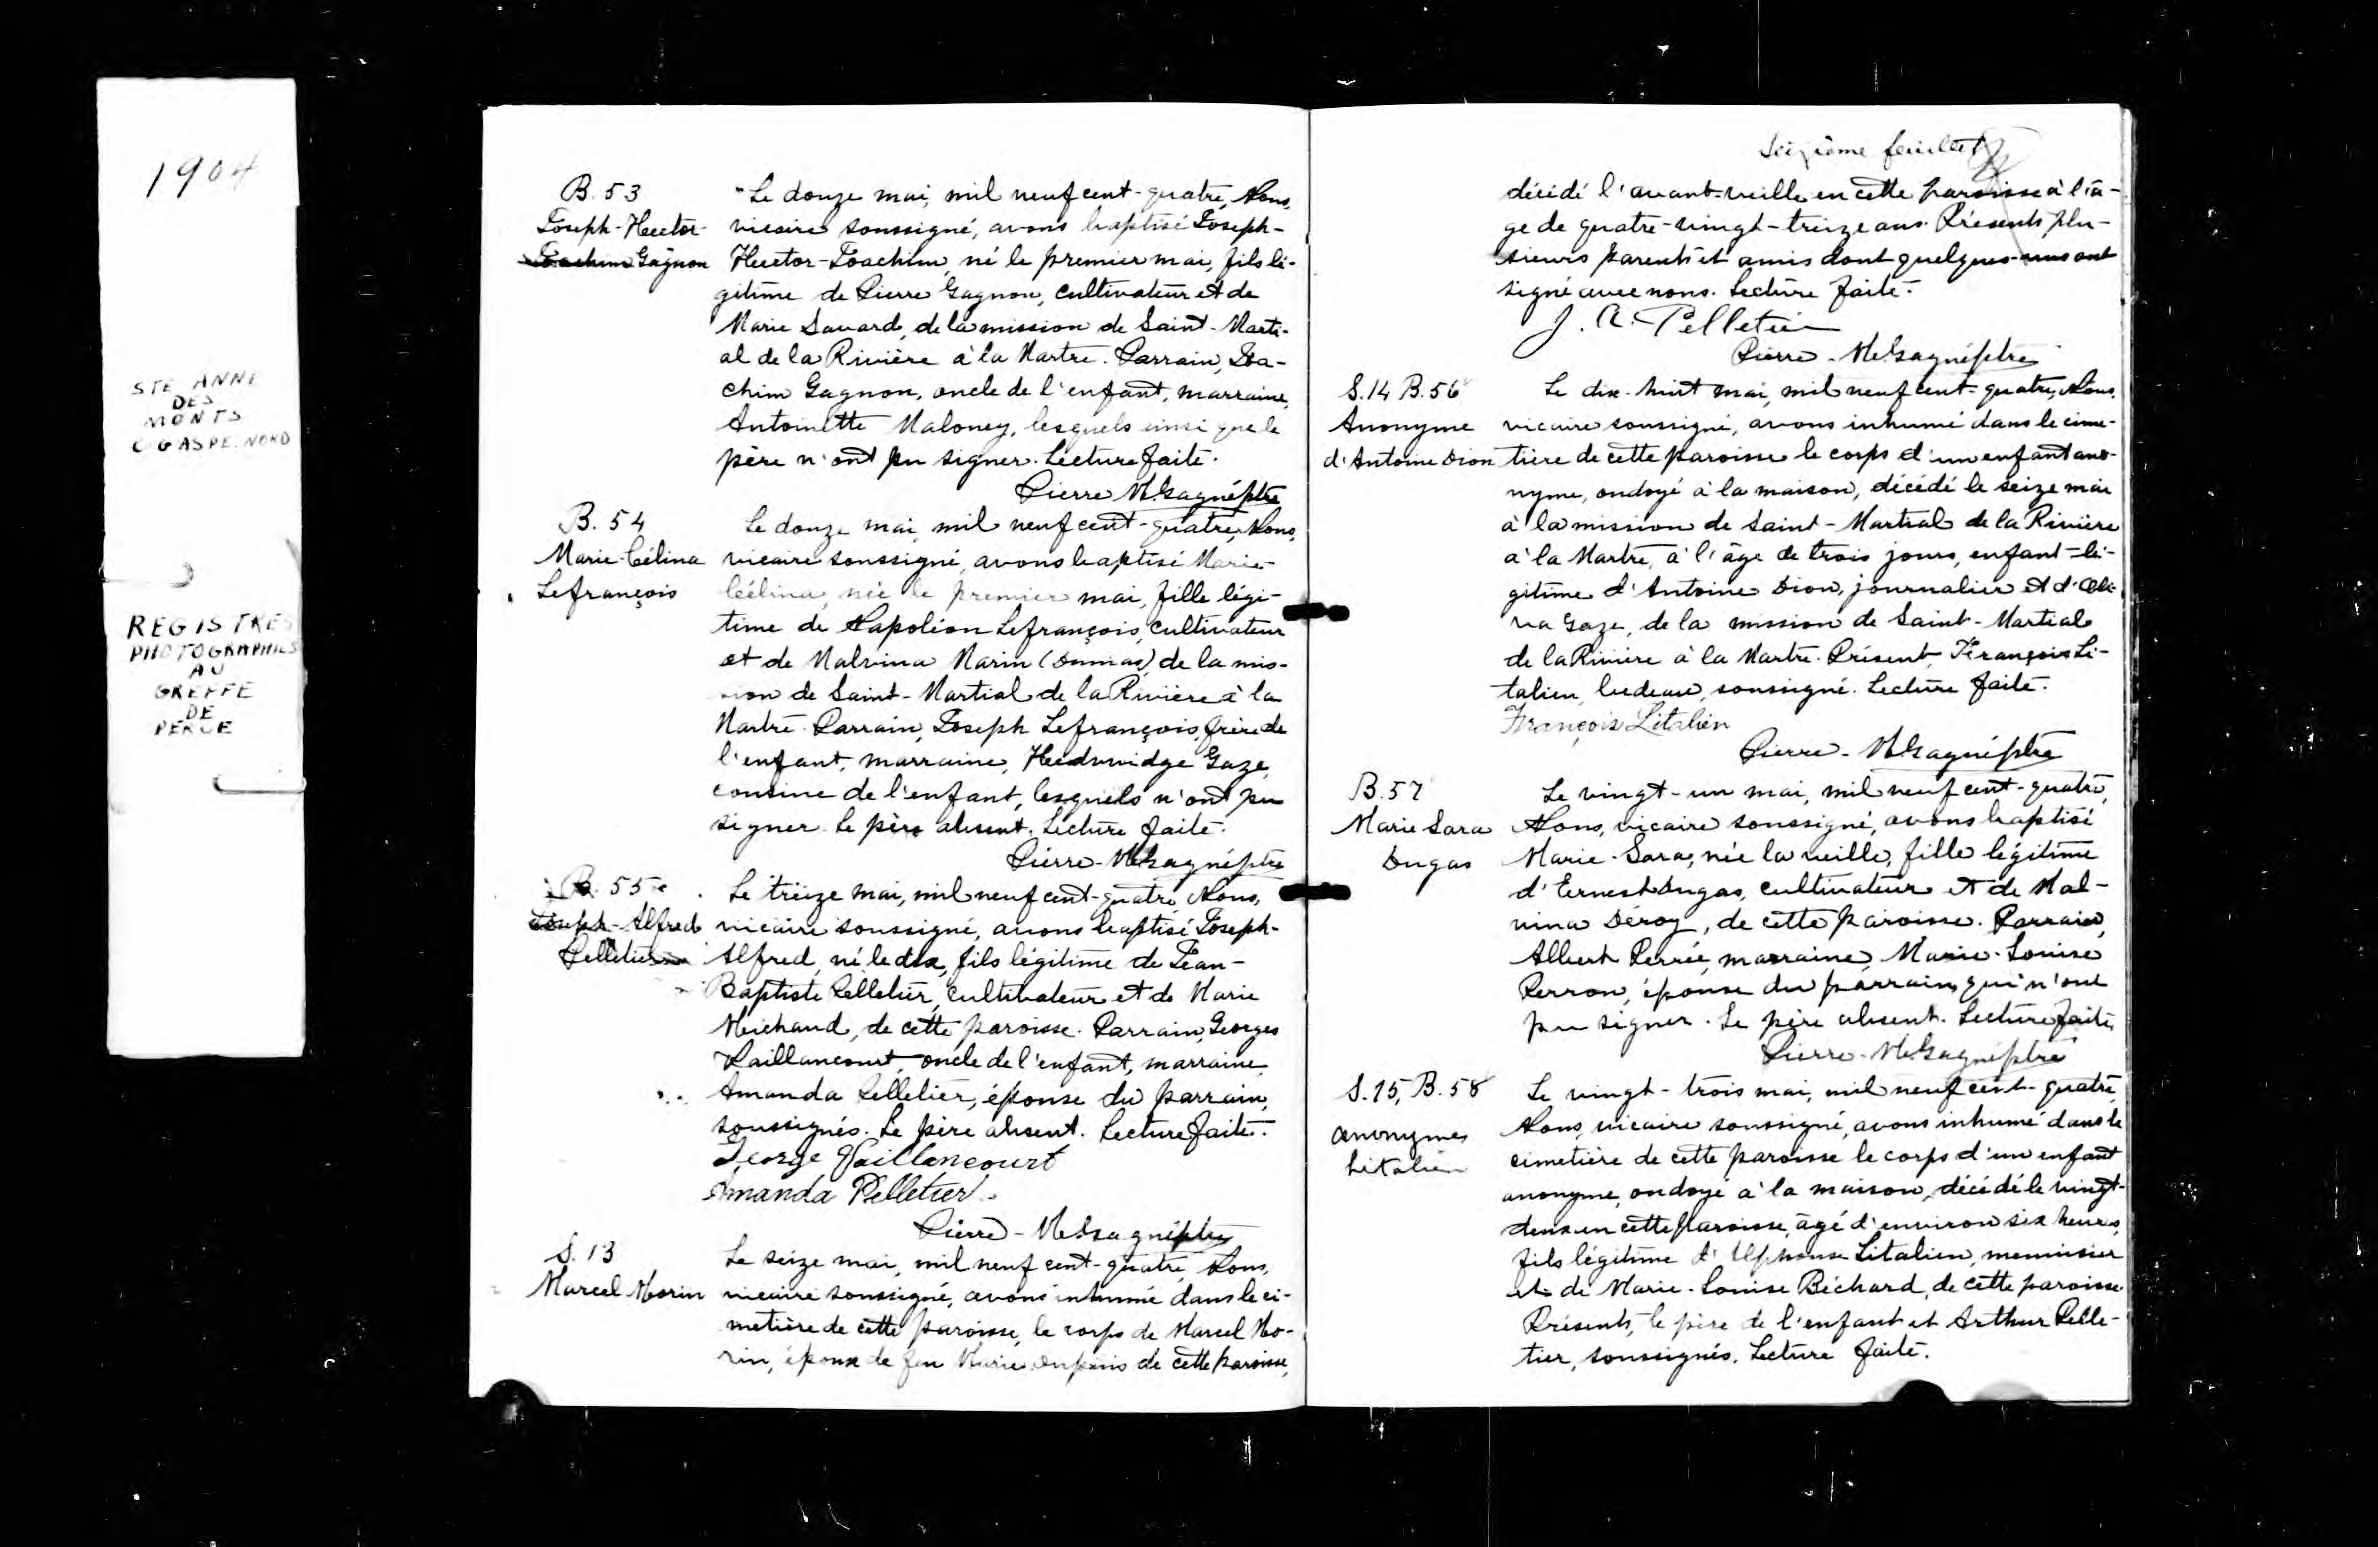 1904
STE ANNE
DES
MONTS
C. GASPE. NORD
REGISTRES
PHOTOGRAPHIES
AU
GREFFE
DE
PERCE
B. 53
Joseph-Hector-
Joachim Gagnon
Le douze mai, mil neuf cent-quatre, Nous,
vicaire soussigné, avons baptisé Joseph-
Hector-Joachim, né le premier mai, fils lé-
gitime de Pierre Gagnon, cultivateur et de
Marie Savard, de la mission de Saint-Marti-
al de la Rivière à la Martre. Parrain, Joa-
chim Gagnon, oncle de l'enfant, marraine,
Antoinette Maloney, lesquels ainsi que le
père n'ont pu signer. Lecture faite.
Pierre M. Gagné ptre
B. 54
Marie-Célina
Lefrançois
Le douze mai, mil neuf cent-quatre, Nous,
vicaire soussigné, avons baptisé Marie-
Célina, née le premier mai, fille légi-
time de Napoléon Lefrançois, cultivateur
et de Malvina Marin (Dumas) de la mis-
sion de Saint-Martial de la Rivière à la
Martre. Parrain, Joseph Lefrançois, frère de
l'enfant, marraine, Hedwidge Gaze,
cousine de l'enfant, lesquels n'ont pu
signer. Le père absent. Lecture faite.
Pierre-M. Gagné ptre
B. 55
Joseph-Alfred
Pelletier
Le treize mai, mil neuf cent-quatre, Nous,
vicaire soussigné, avons baptisé Joseph-
Alfred, né le dix, fils légitime de Jean-
Baptiste Pelletier, cultivateur et de Marie
Michaud, de cette paroisse. Parrain, Georges
Vaillancourt, oncle de l'enfant, marraine,
Amanda Pelletier, épouse du parrain,
soussignés. Le père absent. Lecture faite.
George Vaillancourt
Amanda Pelletier
Pierre-M. Gagné ptre
S. 13
Marcel Morin
Le seize mai, mil neuf cent-quatre, Nous,
vicaire soussigné, avons inhumé dans le ci-
metière de cette paroisse, le corps de Marcel Mo-
rin, époux de feu Marie Dupuis de cette paroisse,
Seizième feuillet
décédé l'avant-veille en cette paroisse à l'â-
ge de quatre-vingt-treize ans. Présents plu-
sieurs parents et amis dont quelques-uns ont
signé avec nous. Lecture faite.
J. A. Pelletier
Pierre-M. Gagné ptre
S. 14 B. 56
Anonyme
d'Antoine Dion
Le dix-huit mai, mil neuf cent-quatre, Nous,
vicaire soussigné, avons inhumé dans le cime-
tière de cette paroisse le corps d'un enfant ano-
nyme, ondoyé à la maison, décédé le seize mai
à la mission de Saint-Martial de la Rivière
à la Martre, à l'âge de trois jours, enfant lé-
gitime d'Antoine Dion, journalier et d'Oli-
va Gaze, de la mission de Saint-Martial
de la Rivière à la Martre. Présent, François Li-
talien, bedeau, soussigné. Lecture faite.
François Litalien
Pierre-M. Gagné ptre
B. 57
Marie Sara
Dugas
Le vingt-un mai, mil neuf cent-quatre,
Nous, vicaire soussigné, avons baptisé
Marie-Sara, née la veille, fille légitime
d'Ernest Dugas, cultivateur et de Mal-
vina Déroy, de cette paroisse. Parrain,
Albert Perrée, marraine, Marie-Louise
Perron, épouse du parrain, qui n'ont
pu signer. Le père absent. Lecture faite.
Pierre-M. Gagné ptre
S. 15, B. 58
Anonyme
Litalien
Le vingt-trois mai, mil neuf cent-quatre,
Nous, vicaire soussigné, avons inhumé dans le
cimetière de cette paroisse le corps d'un enfant
anonyme, ondoyé à la maison, décédé le vingt-
deux en cette paroisse, âgé d'environ six heures,
fils légitime d'Alphonse Litalien, menuisier
et de Marie-Louise Béchard, de cette paroisse.
Présents, le père de l'enfant et Arthur Pelle-
tier, soussignés. Lecture faite.